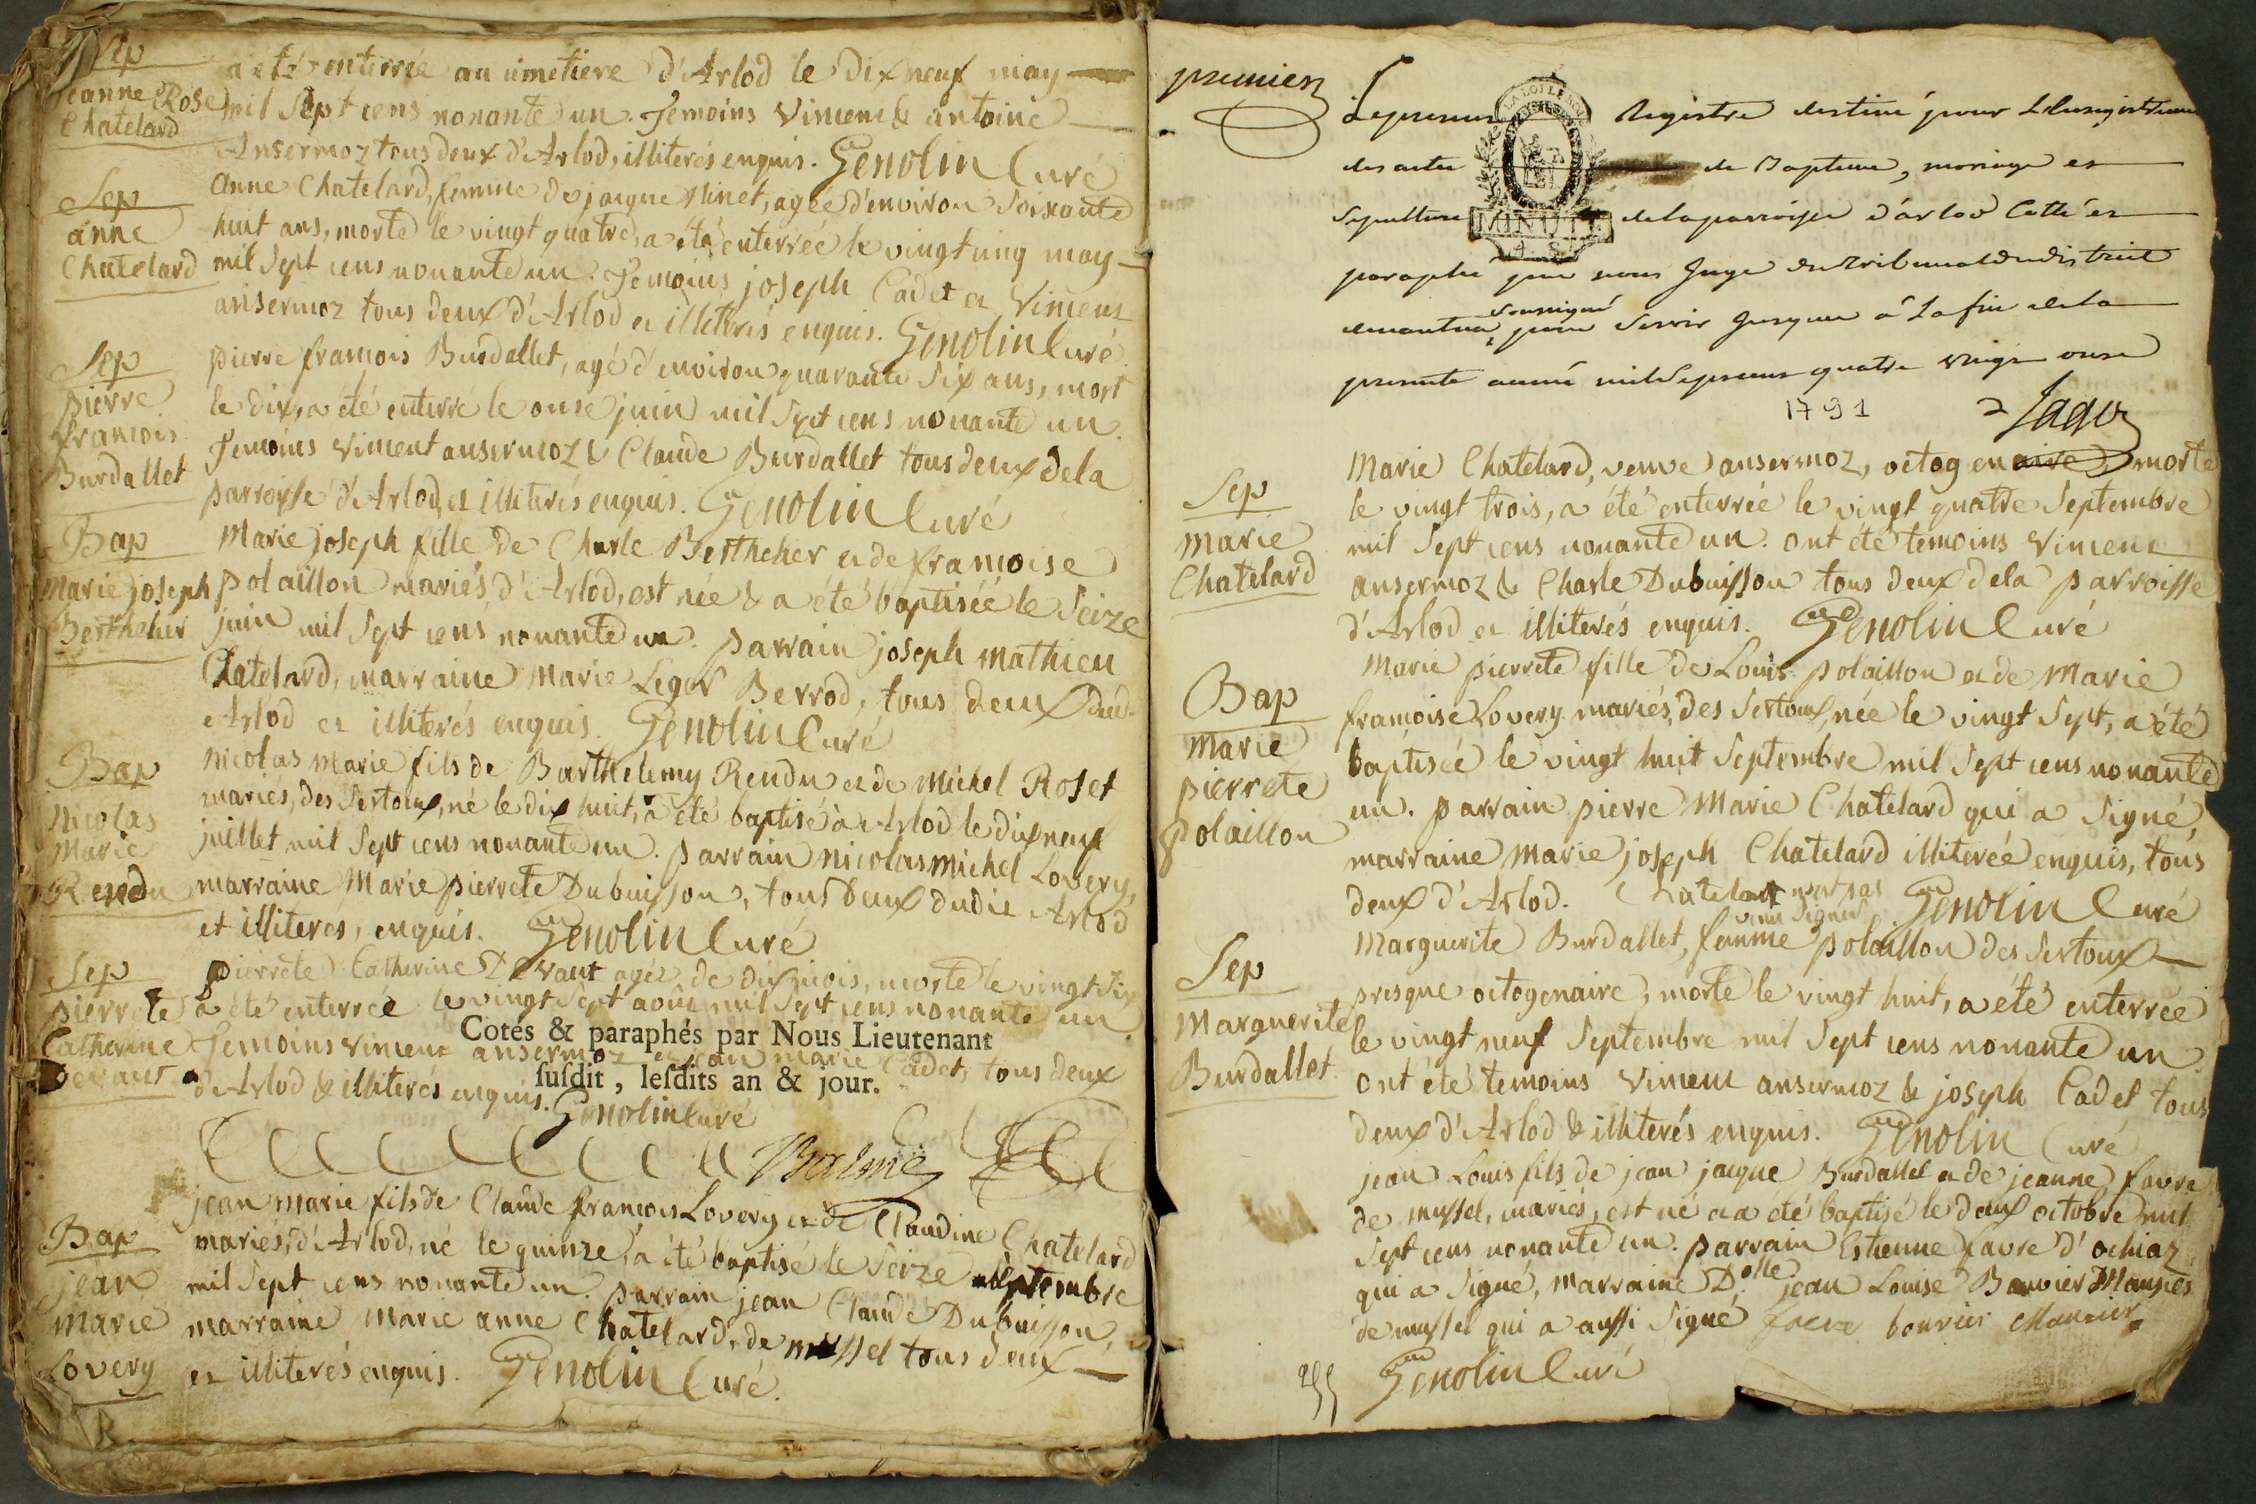 Sep
Jeanne Rose
Chatelard
a été enterrée au cimetiere d'Arlod le dix neuf may
mil Sept cens nonante un. Temoins Vincent & antoine
Ansermoz tous deux d'Arlod, illiterés enquis. Genolin Curé
Sep
anne
Chatelard
Anne Chatelard, femme de jacque Minet, agée d'environ Soixante
huit ans, morte le vingt quatre, a été enterrée le vingt cinq may
mil Sept cens nonante un. Temoins joseph Cadet et Vincent
ansermoz tous deux d'Arlod et illiterés enquis. Genolin Curé
Sep
pierre
francois
Burdallet
pierre francois Burdallet, agé d'environ quarante Six ans, mort
le dix, a été enterre le onse juin mil Sept cens nonante un.
Temoins Vincent ansermoz & Claude Burdallet tous deux de la
parroisse d'Arlod, et illiterés enquis. Genolin Curé
Bap
Marie joseph
Bertheher
Marie joseph fille de Charle Bertheher et de francoise
polaillon mariés d'Arlod, est née & a été baptisée le Seize
juin mil Sept cens nonante un. parrain joseph mathieu
Chatelard, marraine Marie Leger Berrod, tous deux dud.
Arlod et illiterés enquis. Genolin Curé
Bap
Nicolas
Marie
Rendu
Nicolas Marie fils de Barthelemy Rendu et de Michel Roset
mariés, des Sertoux, né le dix huit, a été baptisé à Arlod le dix neuf
juillet mil Sept cens nonante un. parrain nicolas michel Lovery,
marraine Marie pierrete Dubuisson, tous deux dudit Arlod
et illiteres, enquis. Genolin Curé
Sep
pierrete
Catherine
Devaut
pierrete Catherine Devaut agée de dix mois, morte le vingt six
a été enterrée le vingt Sept août mil Sept cens nonante un
Cotés & paraphés par Nous Lieutenant
Temoins Vincent ansermoz et jean marie Cadet, tous deux
susdit, lesdits an & jour.
d'Arlod & illiterés enquis. Genolin Curé
Balme
Bap
jean
Marie
Lovery
jean marie fils de Claude francois Lovery et de Claudine Chatelard
mariés, d'Arlod, né le quinze, a été baptisé le Seize septembre
mil Sept cens nonante un. parrain jean Claude Dubuisson,
marraine Marie anne Chatelard, de mussel tous deux
et illiterés enquis. Genolin Curé.
premier
Le present Registre destiné pour L'enregistrement
LA LOI LE ROI
des actes de Bapteme, mariage et
Sepulture de la parroisse d'arlod Cotté et
MINUTE
4. S.
paraphé par nous Juge du tribunal du district
soussigné
de nantua, pour Servir Jusques à La fin de la
presente année mil Sept cens quatre vingt onse
1791
Jagot
Sep
Marie
Chatelard
Marie Chatelard, veuve ansermoz, octogenaire, morte
le vingt trois, a été enterrée le vingt quatre Septembre
mil Sept cens nonante un. ont été temoins Vincent
ansermoz & Charle Dubuisson tous deux de la parroisse
d'Arlod et illiterés enquis. Genolin Curé
Bap
Marie
pierrete
polaillon
Marie pierrete fille de Louis polaillon et de Marie
francoise Lovery mariés, des Sertoux, née le vingt Sept, a été
baptisée le vingt huit Septembre mil Sept cens nonante
un. parrain pierre Marie Chatelard qui a Signé,
marraine Marie joseph Chatelard illiterée enquis, tous
deux d'Arlod. Chatelard n'est pas
venu Signer Genolin Curé
Sep
Marguerite
Burdallet
Marguerite Burdallet, femme polaillon des Sertoux
presque octogenaire, morte le vingt huit, a été enterrée
le vingt neuf Septembre mil Sept cens nonante un
ont été temoins Vincent ansermoz & joseph Cadet tous
deux d'Arlod & illiterés enquis. Genolin Curé
jean Louis fils de jean jacque Burdallet et de jeanne favre
de mussel, mariés, est né et a été baptisé le deux octobre mil
Sept cens nonante un. parrain Estienne favre d'ochiaz
qui a Signé, marraine D.olle jean Louise Bouvier Maurier
de mussel qui a aussi Signé favre bouvier Maurier
Genolin Curé